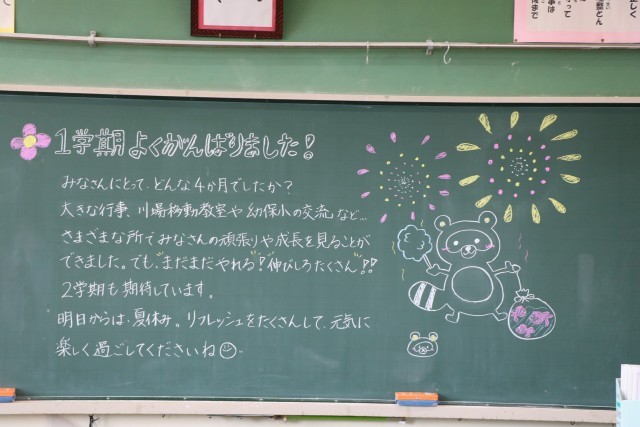 1学期よくがんばりました!
みなさんにとって、どんな4か月でしたか?
大きな行事、川場移動教室や幼保小の交流など…
さまざまな所でみなさんの頑張りや成長を見ることが
できました。でも、まだまだやれる!伸びしろたくさん!!
2学期も期待しています。
明日からは、夏休み。リフレッシュをたくさんして、元気に
楽しく過ごしてくださいね